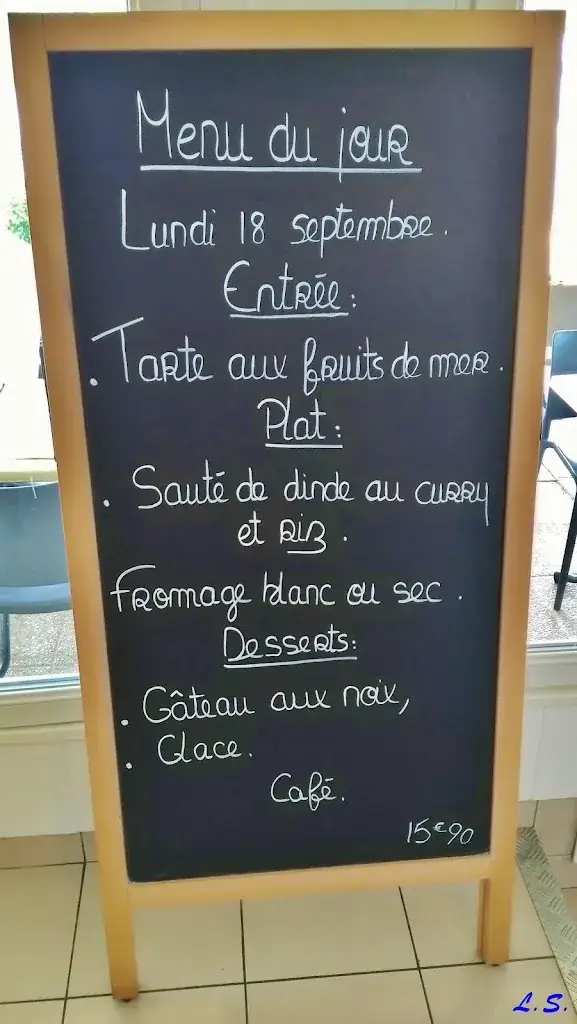 Menu du jour
Lundi 18 septembre.
Entrée:
. Tarte aux fruits de mer.
Plat:
. Sauté de dinde au curry
et riz.
Fromage blanc ou sec.
Desserts:
. Gâteau aux noix,
. Glace.
Café.
15€90
L.S.